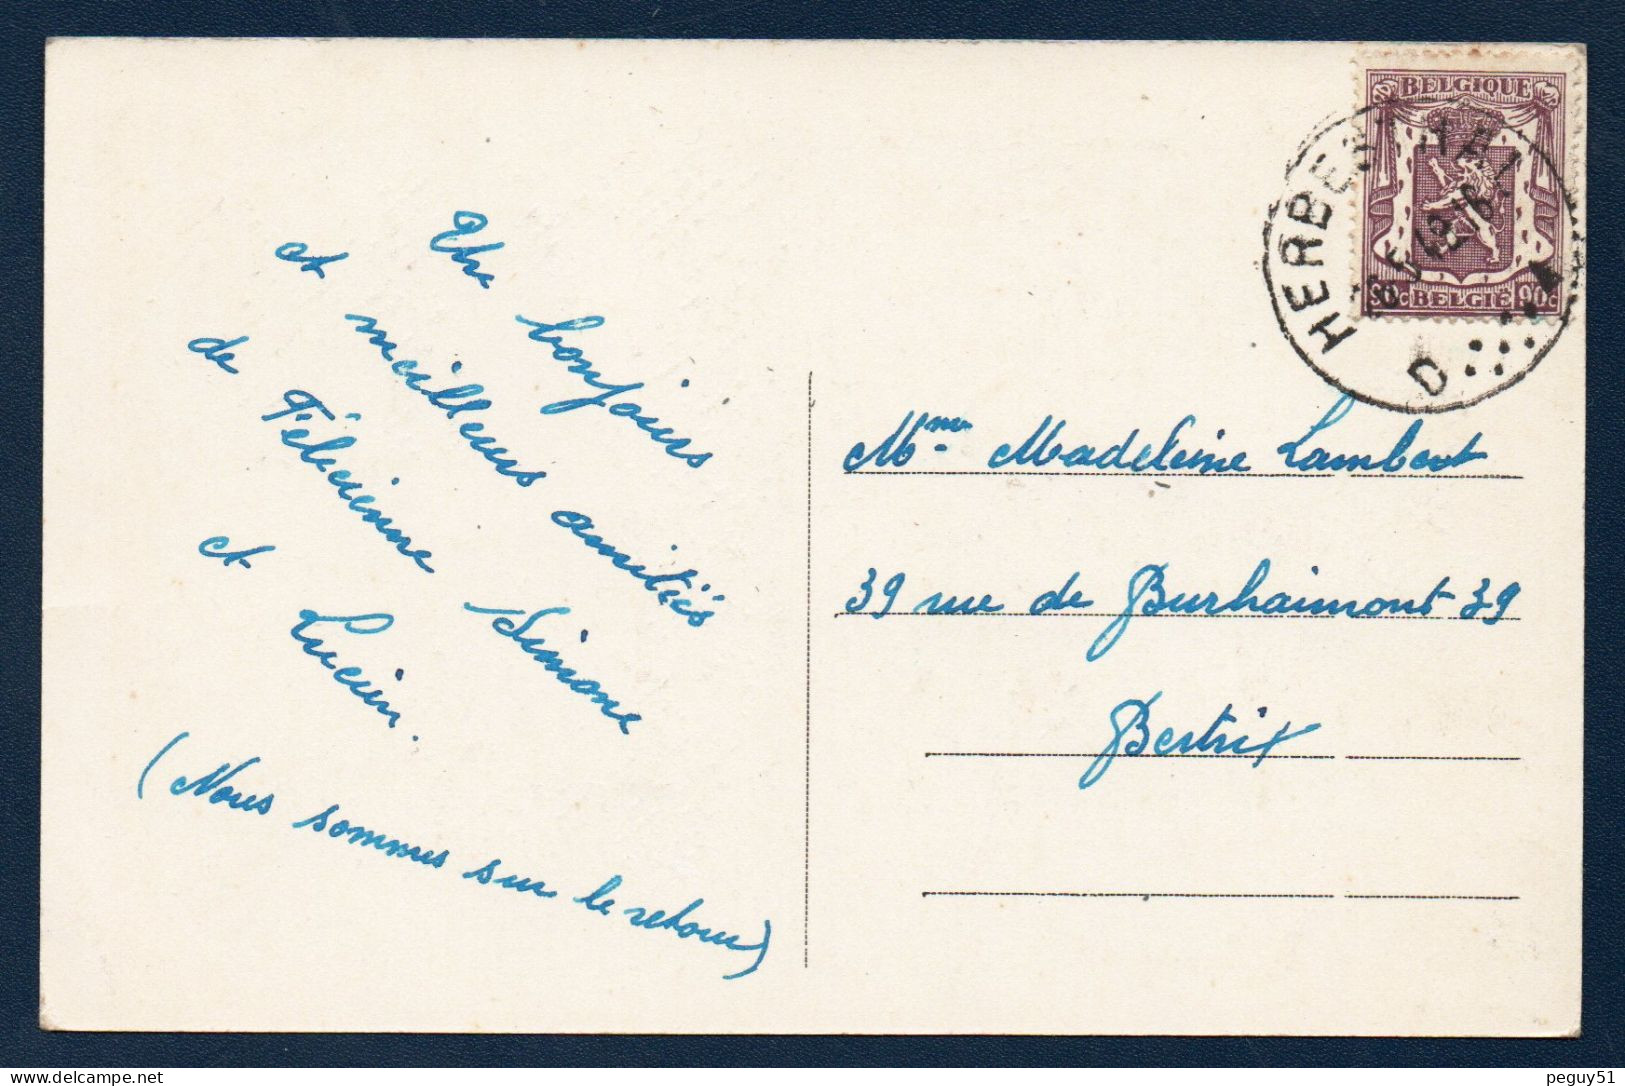 Un bonjours
et meilleurs amitiés
de Félicienne Simone
et Lucien.
(Nous sommes sur le retour)
BELGIQUE
90c BELGIË 90c
HERBESTHAL
D
Mme Madeleine Lambert
39 rue de Burhaimont 39
Bertrix
delcampe.net
peguy51